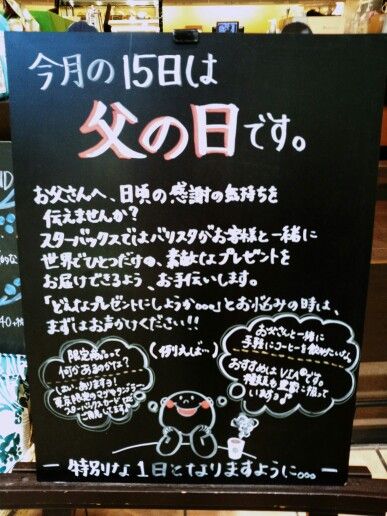 今月の15日は
父の日です。
お父さんへ、日頃の感謝の気持ちを
伝えませんか?
スターバックスではバリスタがお客様と一緒に
世界でひとつだけの、素敵なプレゼントを
お届けできるよう、お手伝いします。
「どんなプレゼントにしようか。。。」とお悩みの時は、
まずはお声かけください!!
(例えば…)
限定商品って
何かあるのかな?
はい、あります!
東京限定のマグやタンブラー
スターバックスカード
ご用意してます
お父さんと一緒に
手軽にコーヒーを飲めたいいなぁ
おすすめはVIA®です。
種類も豊富に揃って
います♪
ー特別な1日となりますように。。。ー